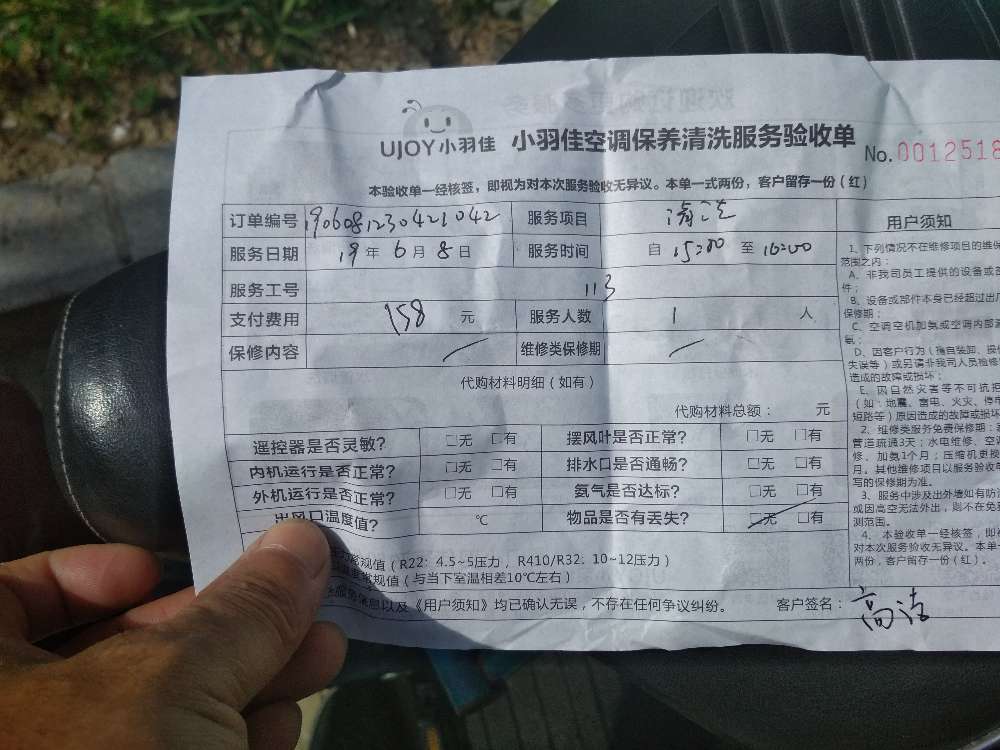 UJOY小羽佳 小羽佳空调保养清洗服务验收单
No.0012518
本验收单一经核签，即视为对本次服务验收无异议。本单一式两份，客户留存一份（红）
订单编号 1906081230421042 服务项目 清洗
服务日期 19年6月8日 服务时间 自 15:00 至 16:00
服务工号 113
支付费用 158 元 服务人数 1 人
保修内容 维修类保修期
代购材料明细（如有）
代购材料总额： 元
遥控器是否灵敏？ □无 □有 摆风叶是否正常？ □无 □有
内机运行是否正常？ □无 □有 排水口是否通畅？ □无 □有
外机运行是否正常？ □无 □有 氨气是否达标？ □无 □有
出风口温度值？ ℃ 物品是否有丢失？ □无 □有
常规值（R22：4.5~5压力，R410/R32：10~12压力）
常规值（与当下室温相差10℃左右）
信息以及《用户须知》均已确认无误，不存在任何争议纠纷。 客户签名：
用户须知
1、下列情况不在维修项目的维保
范围之内：
A、非我司员工提供的设备或部
件；
B、设备或部件本身已经超过出厂
保修期；
C、空调空机加氨或空调内部
氨；
D、因客户行为（擅自装卸、操
失误等）或另请非我司人员检修
造成的故障或损坏；
E、因自然灾害等不可抗拒
（如：地震、雷电、火灾、停
短路等）原因造成的故障或损坏
2、维修类服务免费保修期：
管道疏通3天；水电维修、空
修、加氨1个月；压缩机更换
月。其他维修项目以服务验收单
写的保修期为准。
3、服务中涉及出外墙如有防
或因高空无法外出，则不在免
测范围。
4、本验收单一经核签，即
对本次服务验收无异议。本单一
两份，客户留存一份（红）。